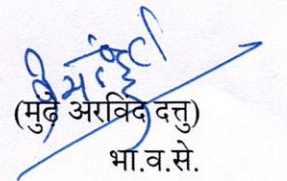 (मुढे अरविंद दत्तु)
भा.व.से.